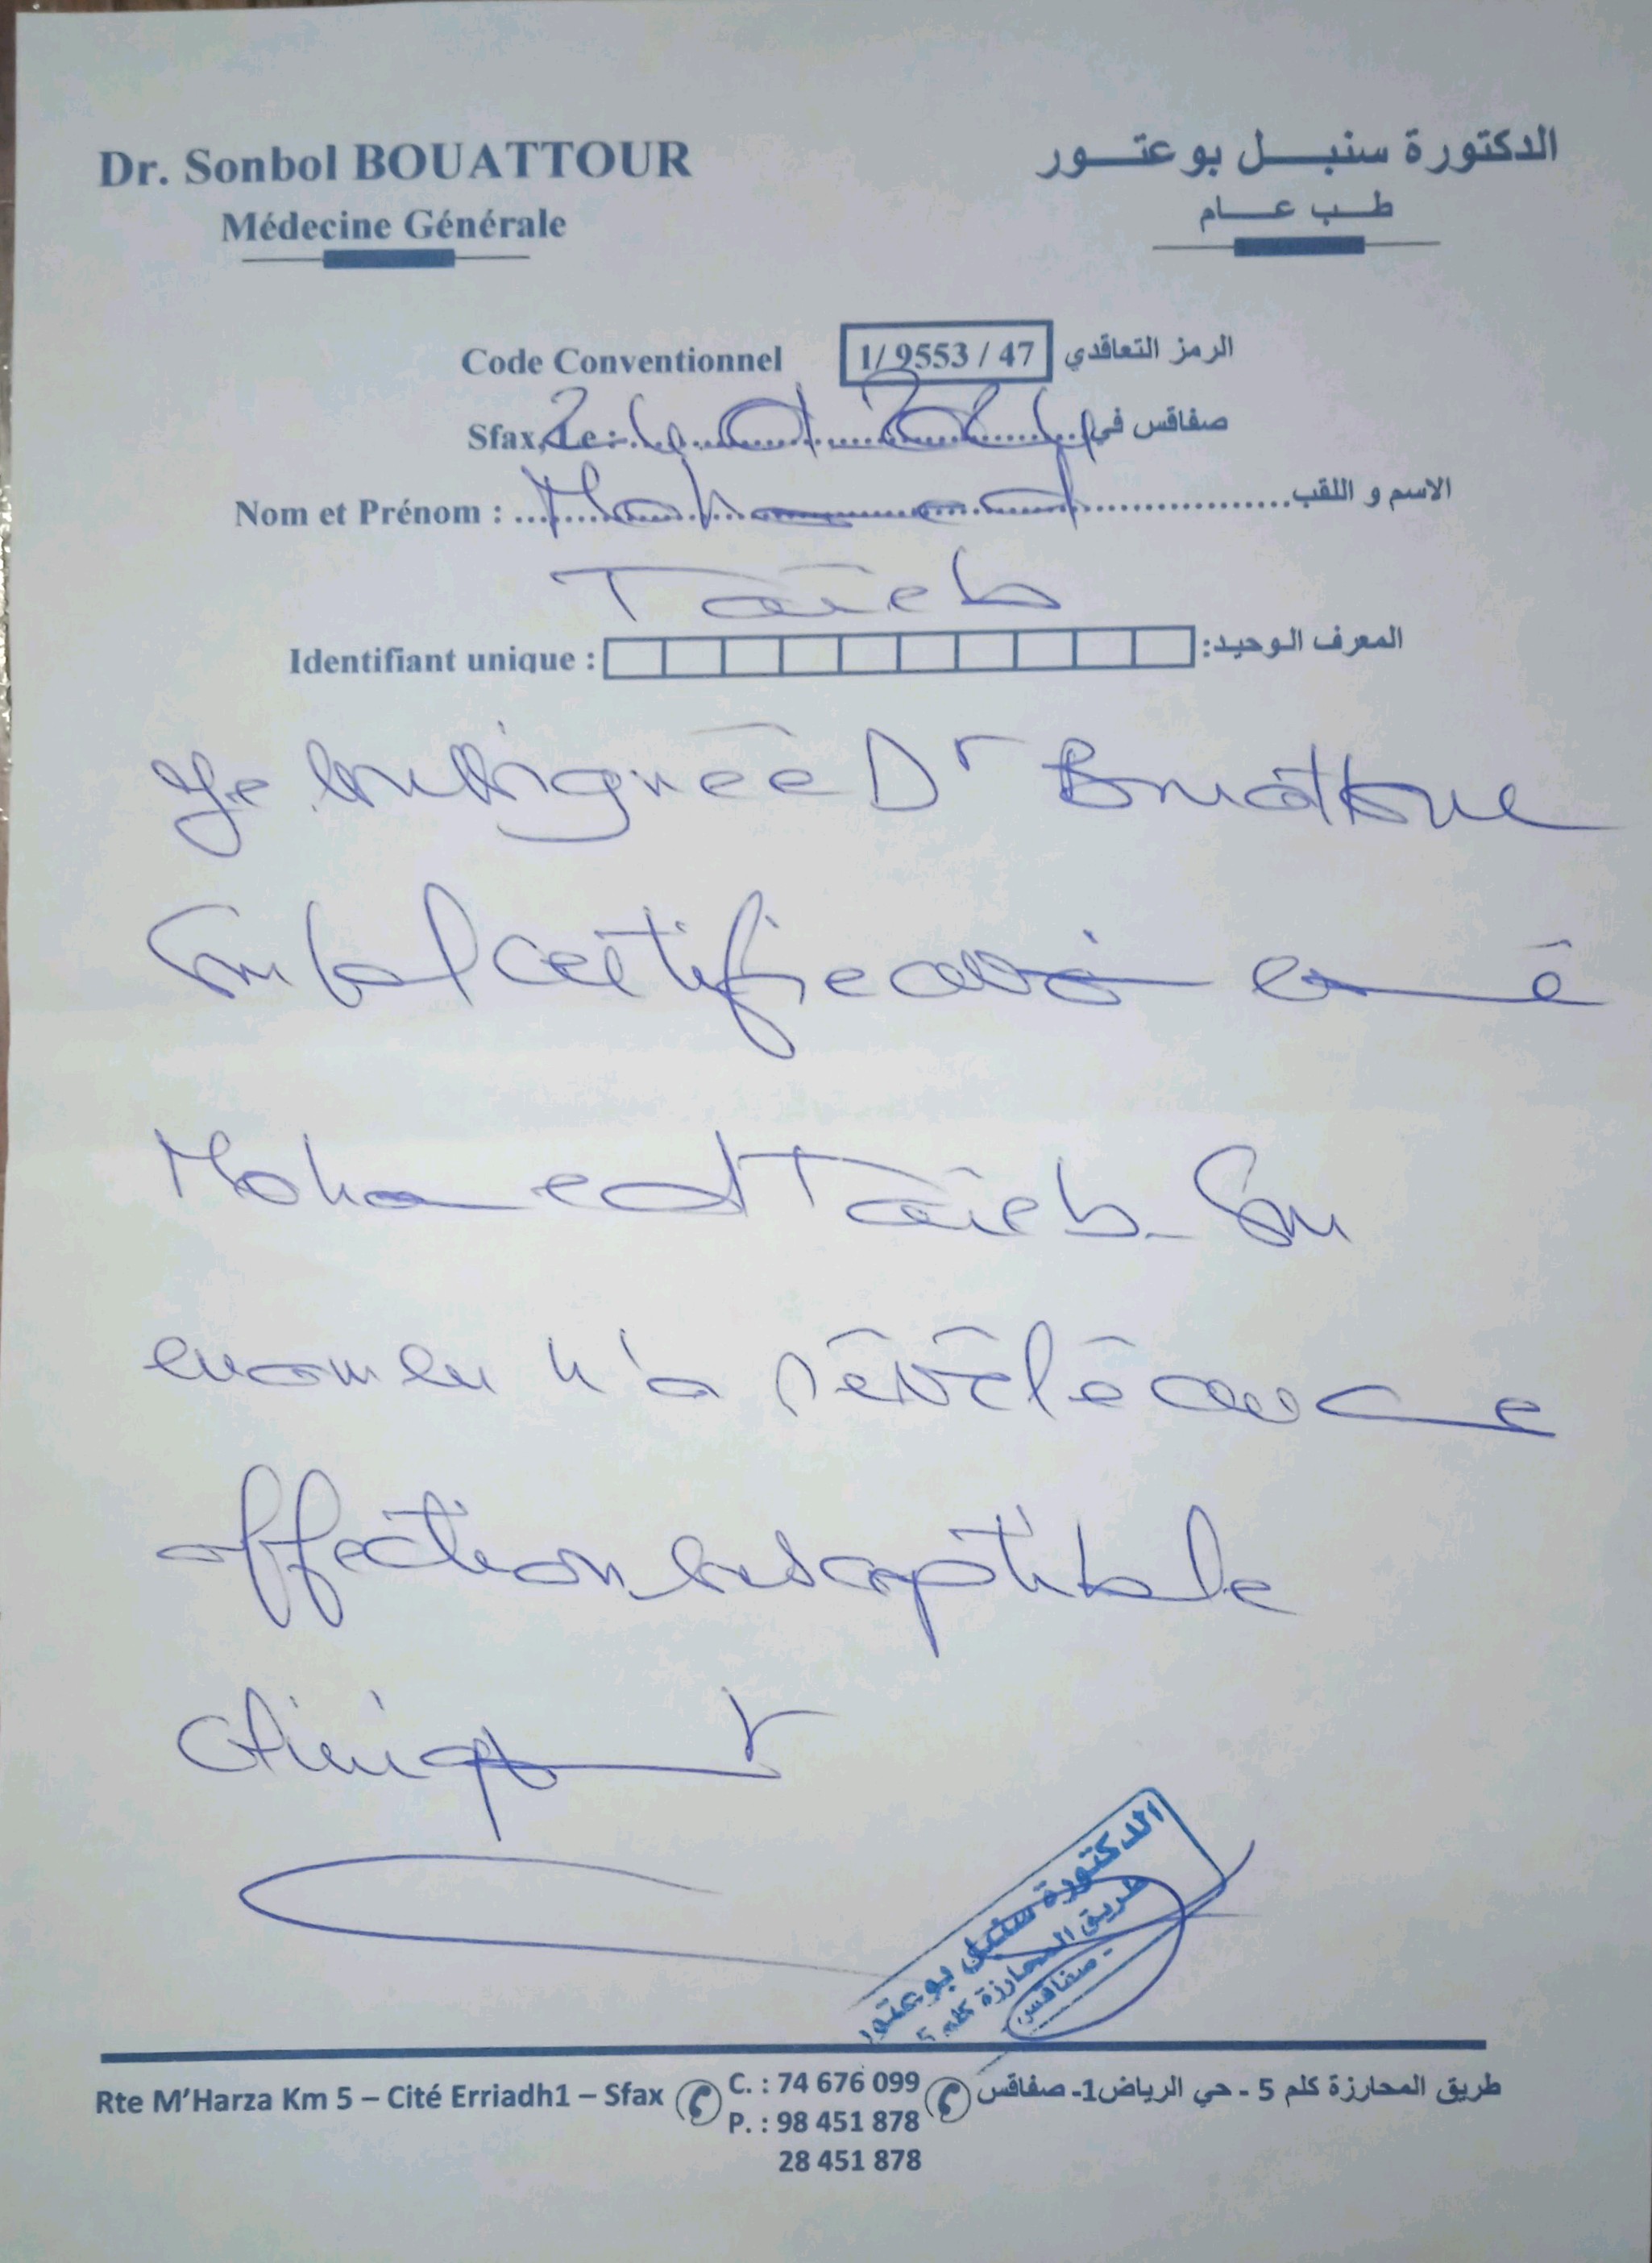 Dr. Sonbol BOUATTOUR
الدكتورة سنبل بوعتور
Médecine Générale
طب عام
Code Conventionnel 1/ 9553 / 47 الرمز التعاقدي
Sfax, Le : صفاقس في
Nom et Prénom : Mohamed الاسم و اللقب
Taïeb
Identifiant unique : المعرف الوحيد:
Je soussignée Dr Bouattour
Sonbol certifie avoir examiné
Mohamed Taïeb. Son
examen n'a révélé aucune
affection susceptible
cliniquement
الدكتورة سنبل بوعتور
طريق المحارزة كلم 5
- صفاقس -
Rte M'Harza Km 5 – Cité Erriadh1 – Sfax C. : 74 676 099 طريق المحارزة كلم 5 - حي الرياض1- صفاقس
P. : 98 451 878
28 451 878